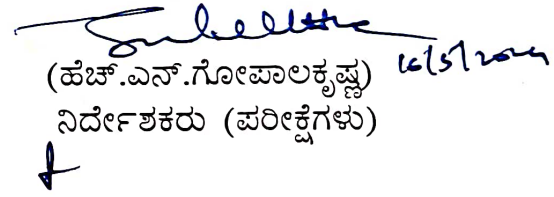 16/5/2024
(ಹೆಚ್.ಎನ್.ಗೋಪಾಲಕೃಷ್ಣ)
ನಿರ್ದೇಶಕರು (ಪರೀಕ್ಷೆಗಳು)